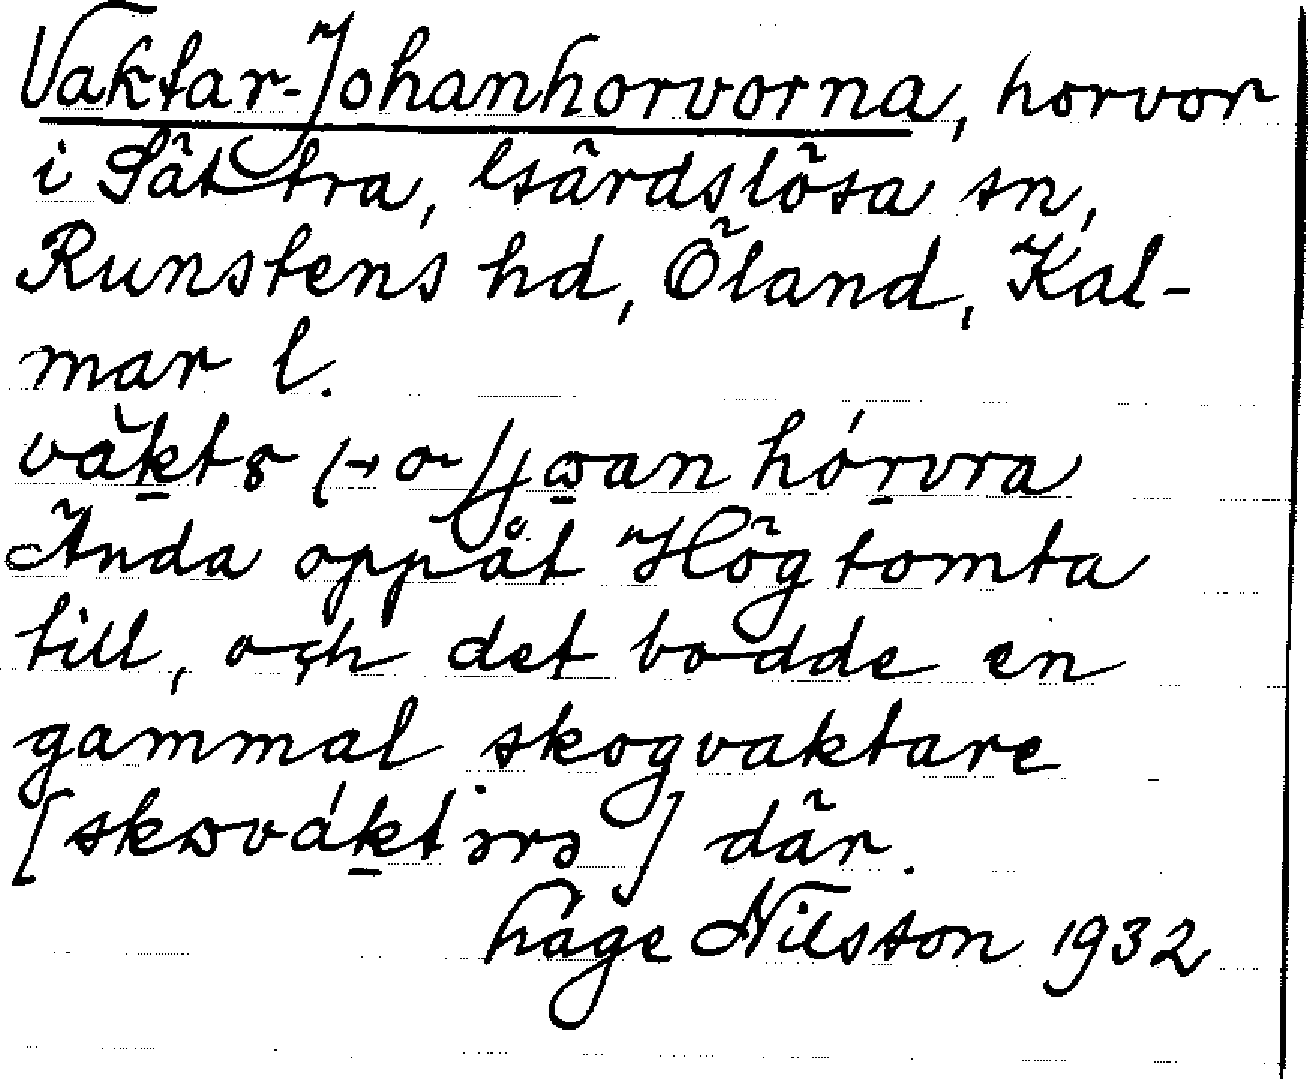 Vaktar-Johanhorvorna, horvor
i Sättra, Gärdslösa sn,
Runstens hd, Öland, Kal-
mar l.
hórvra
Ända oppåt Högtomta
till, och det bodde en
gammal skogvaktare
[skωváktərə] där.
Håge Nilsson 1932